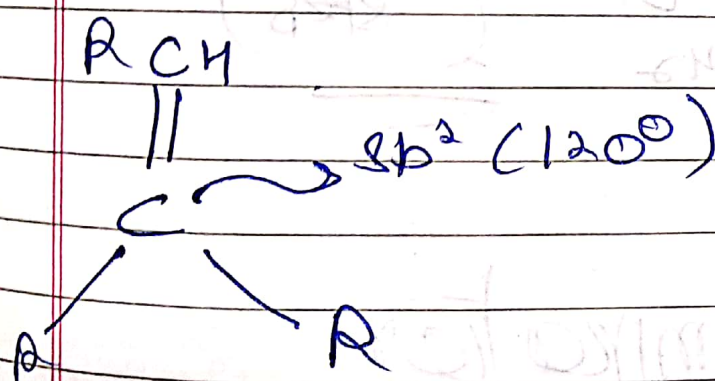 R CH
||
C sp² (120°)
R R